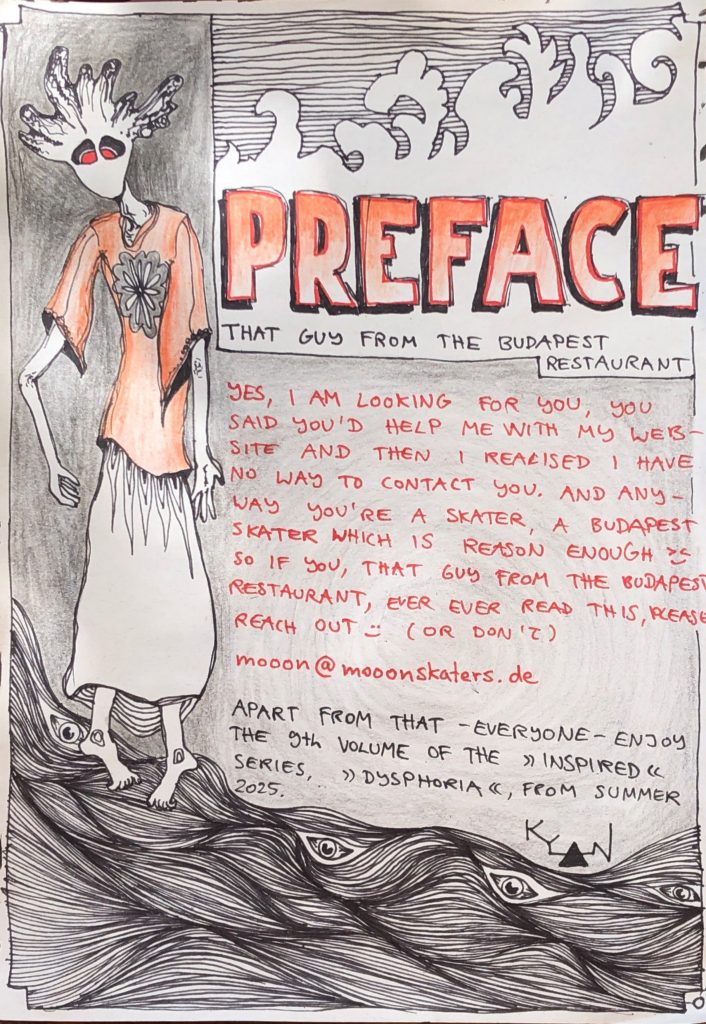 PREFACE
THAT GUY FROM THE BUDAPEST
RESTAURANT
YES, I AM LOOKING FOR YOU, YOU
SAID YOU'D HELP ME WITH MY WEB-
SITE AND THEN I REALISED I HAVE
NO WAY TO CONTACT YOU. AND ANY-
WAY YOU'RE A SKATER, A BUDAPEST
SKATER WHICH IS REASON ENOUGH
SO IF YOU, THAT GUY FROM THE BUDAPEST
RESTAURANT, EVER EVER READ THIS, PLEASE
REACH OUT :) (OR DON'T)
mooon@mooonskaters.de
APART FROM THAT -EVERYONE- ENJOY
THE 9th VOLUME OF THE »INSPIRED«
SERIES, »DYSPHORIA«, FROM SUMMER
2025.
KYAN